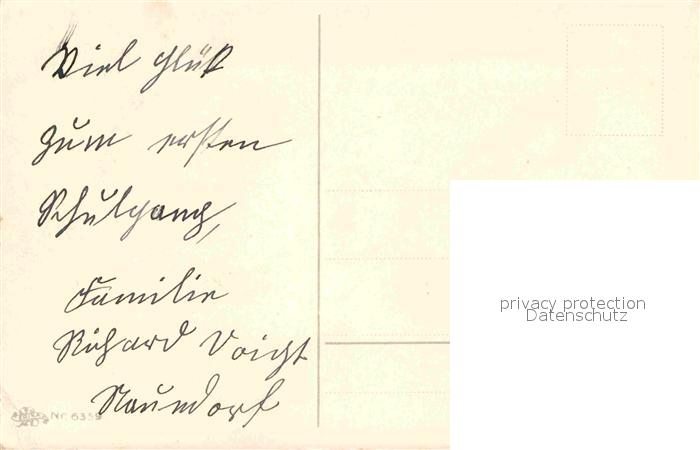 Viel Glück
zum ersten
Schulgang,
Familie
Richard Voigt
Naundorf
No 6359
privacy protection
Datenschutz